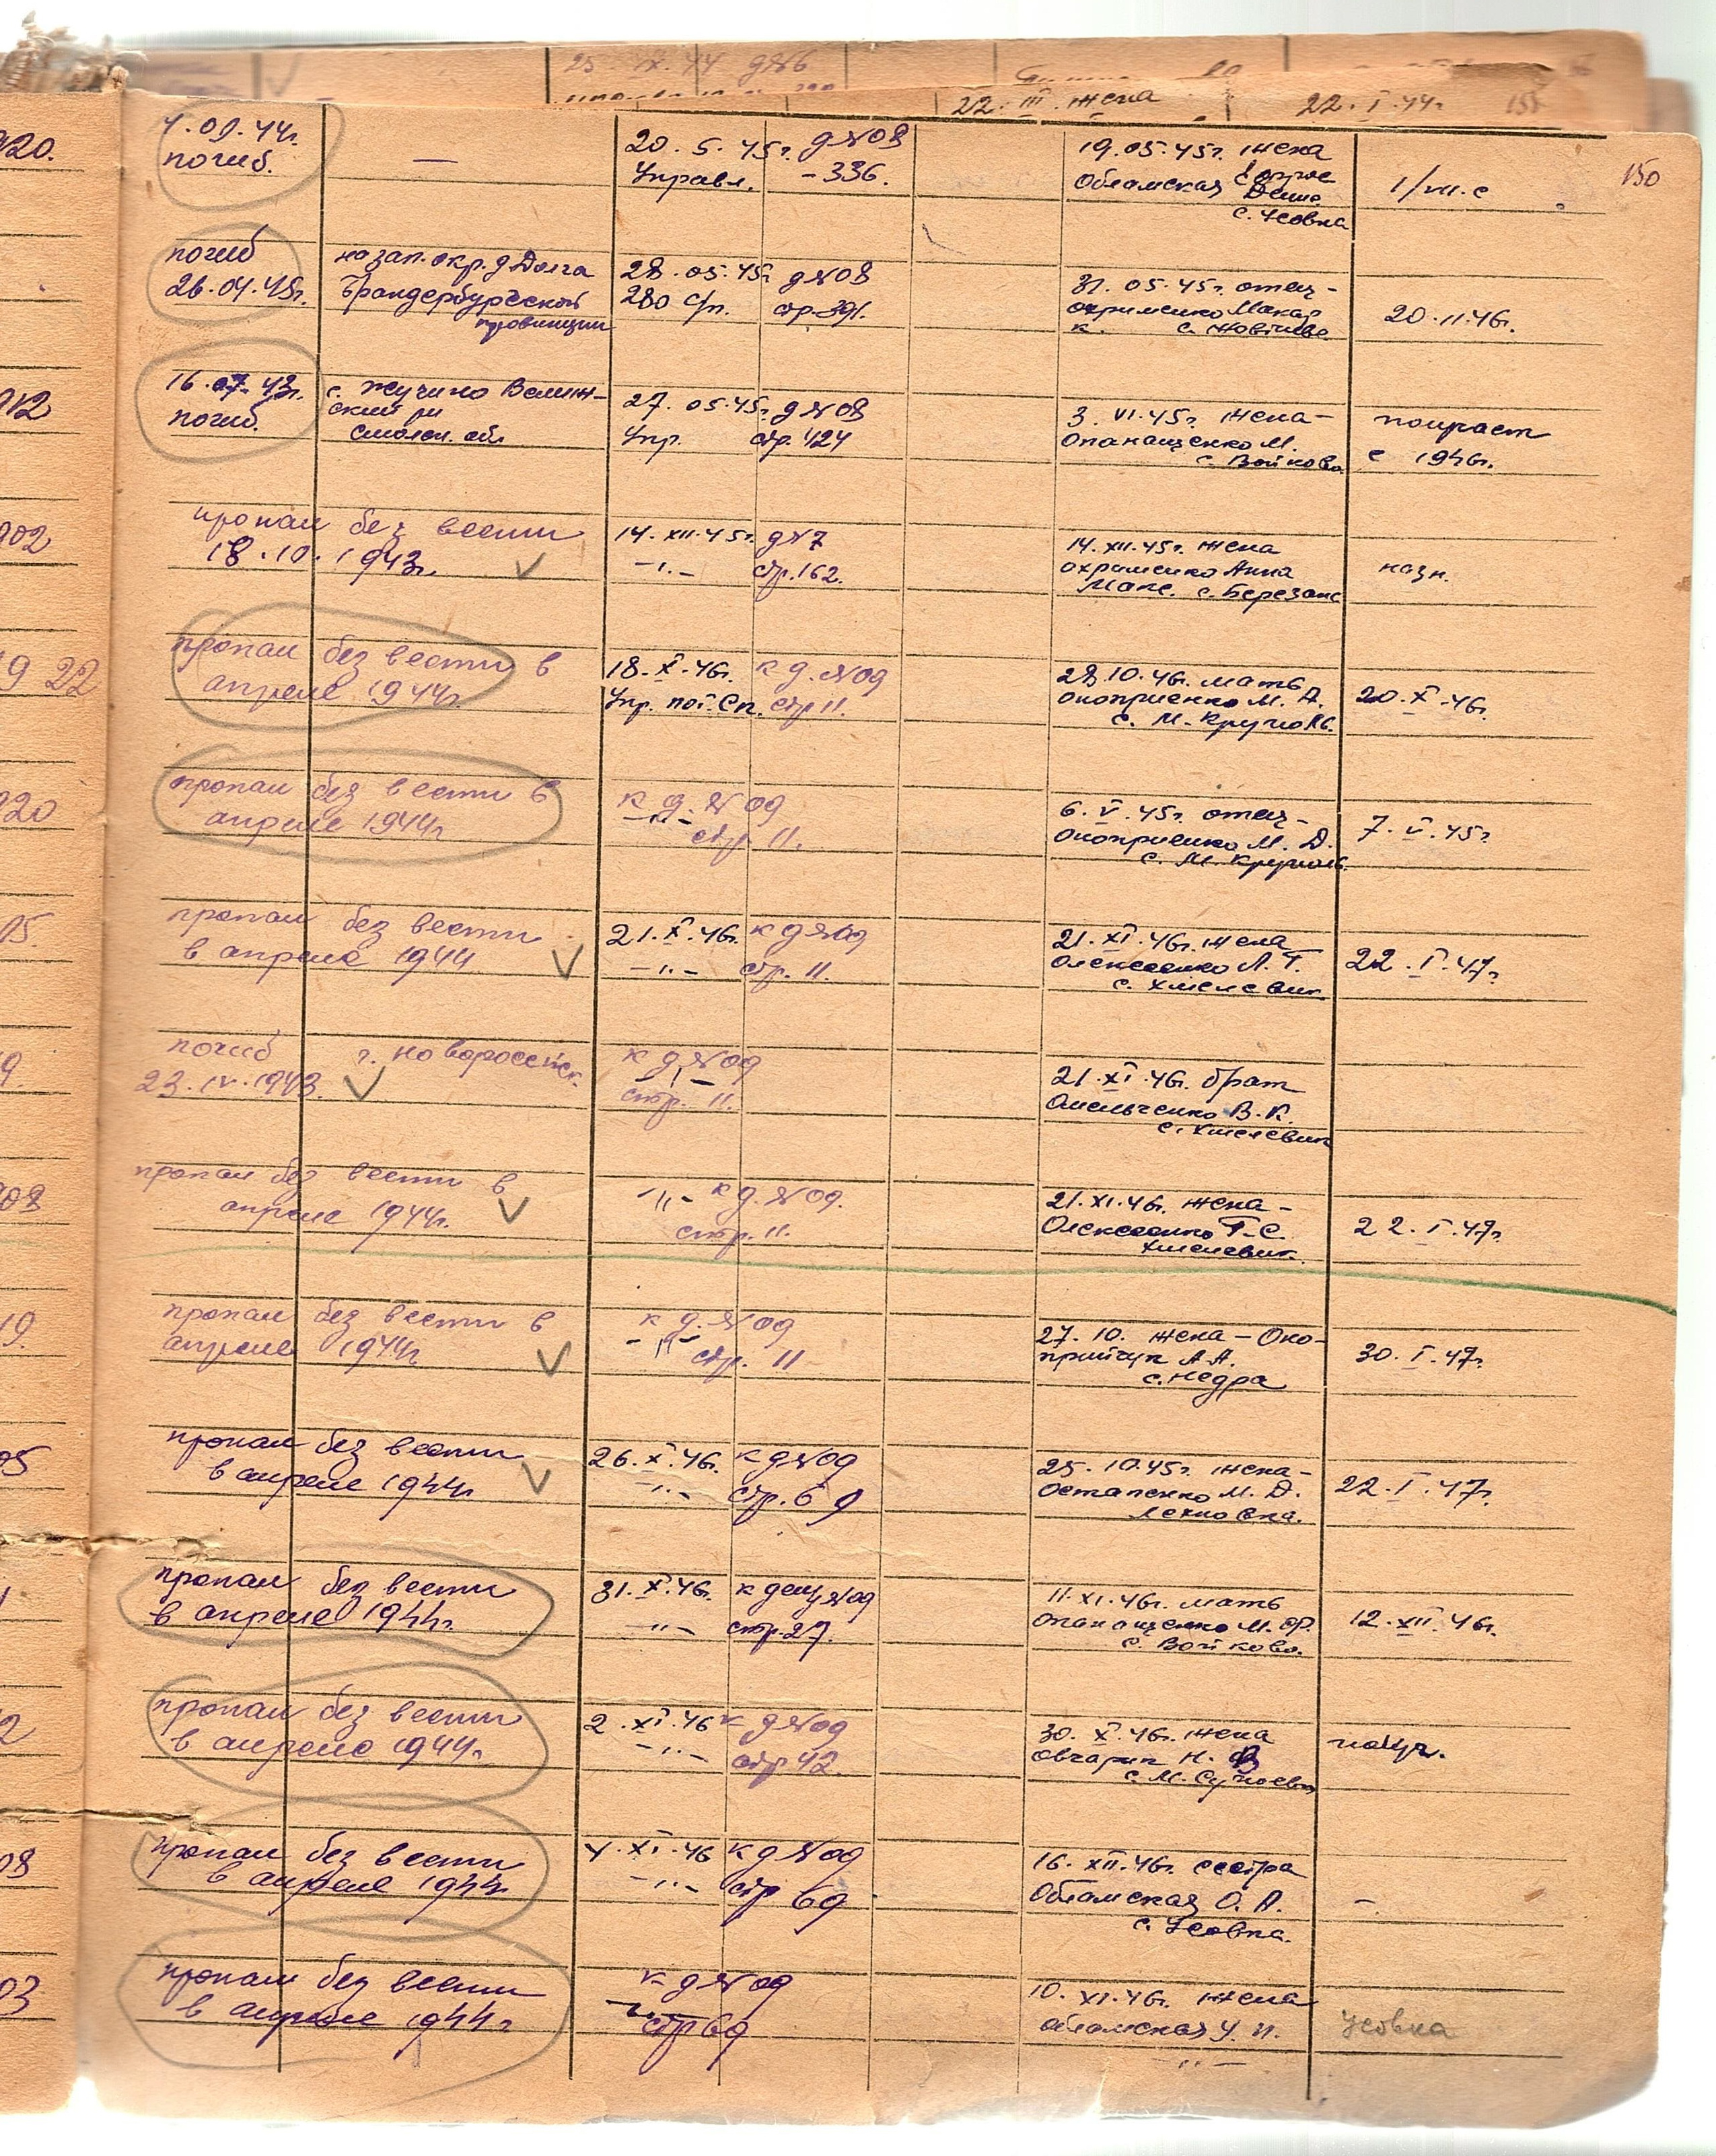 22. III. жена 22. I. 44г
150
920.
погиб.
—
20. 5. 45г. д №08
Управл. – 336.
19. 05. 45г. жена
Обламская
с. Усовка
1/VII. с
погиб
26. 04. 45г.
на зап. окр. д Долга
Брандербургской
провинции
28. 05. 45г д №08
280 с/п. стр. 391.
31. 05. 45г. отец –
охрименко Макар
к. с.
20. 11. 46г.
912
16. 07. 43г.
погиб.
с. Жучино Велиж–
ский р
Смолен. обл
27. 05. 45г. д №08
Упр. стр. 424
3. VI. 45г. жена –
Опанащенко М.
с. Войково
с 1946г.
902
пропал без вести
18. 10. 1943г.
14. XII. 45г. д №7
–"– стр. 162.
14. XII. 45г. жена
охрименко Анна
Макс. с. Березане
назн.
9 22
пропал без вести в
апреле 1944г.
18. X. 46г. к д. №09
Упр. стр 11.
28. 10. 46г. мать
оноприенко М. Д.
с. М. Круполь.
20. X. 46г.
920
пропал без вести в
апреле 1944г
к д. №09
–"– стр 11.
6. V. 45г. отец –
Оноприенко М. Д.
с. М. Круполь.
7. V. 45г
05.
пропал без вести
в апреле 1944
21. X. 46г. к д №09
–"– стр. 11.
21. XI. 46г. жена
Олексеенко Л. Т.
с. Хмелевик
22. I. 47г.
9.
погиб г. Новороссийск.
23. IV. 1943.
к д №09
–"–
стр. 11.
21. XI. 46г. брат
Омельченко В. К.
с. Хмелевик
908
пропал без вести в
апреле 1944г.
–"– к д. №09.
стр. 11.
21. XI. 46г. жена –
Олексеенко Г. С.
Хмелевик.
22. I. 47г.
19.
пропал без вести в
апреле 1944г
к д. №09
–"– стр. 11
27. 10. жена – Оно–
прийчук А. А.
с. Недра
30. I. 47г
05
пропал без вести
в апреле 1944г
26. X. 46г. к д №09
–"– стр. 69
25. 10. 45г. жена –
Остапенко М. Д.
Лехновка.
22. I. 47г.
пропал без вести
в апреле 1944г.
31. X. 46г. к делу №09
–"– стр. 27.
11. XI. 46г. мать
опанащенко М. Ф.
с. Войково.
12. XII. 46г.
2
пропал без вести
в апреле 1944г.
2. XI. 46 к д №09
–"– стр 42.
30. X. 46г. жена
Овчарик Н.
с. М. Супоевка
08
пропал без вести
в апреле 1944г
4. XI. 46 к д №09
–"– стр 69
16. XII. 46г. сестра
Обламская О. А.
с. Усовка.
–.
03
пропал без вести
в апреле 1944г
к д №09
–"– стр 69
10. XI. 46г. жена
обламская У. И.
–"–
Усовка